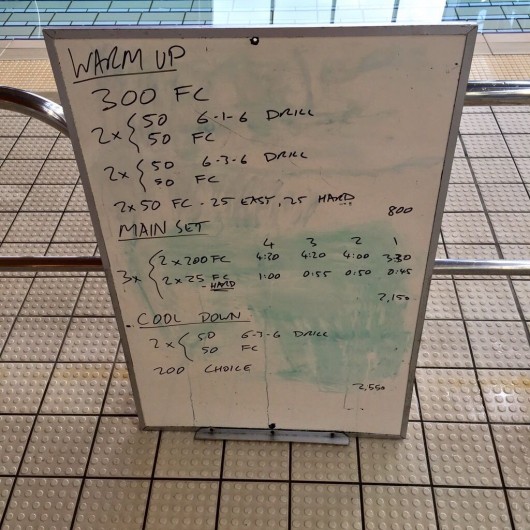 WARM UP
300 FC
2x { 50 6-1-6 DRILL
50 FC
2x { 50 6-3-6 DRILL
50 FC
2x50 FC - 25 EASY, 25 HARD
800
MAIN SET
4 3 2 1
3x { 2x200 FC 4:20 4:20 4:00 3:30
2x25 FC 1:00 0:55 0:50 0:45
- HARD
2,150
COOL DOWN
2x { 50 6-3-6 DRILL
50 FC
200 CHOICE
2,550